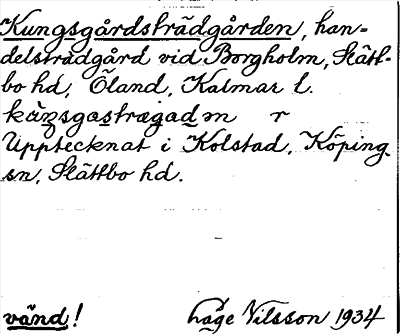 Kungsgårdsträdgården, han-
delsträdgård vid Borgholm, Slätt-
bo hd, Öland, Kalmar l.
käŋsgastrægadm r
Upptecknat i Kolstad, Köping
sn, Slättbo hd.
vänd! Låge Nilsson 1934